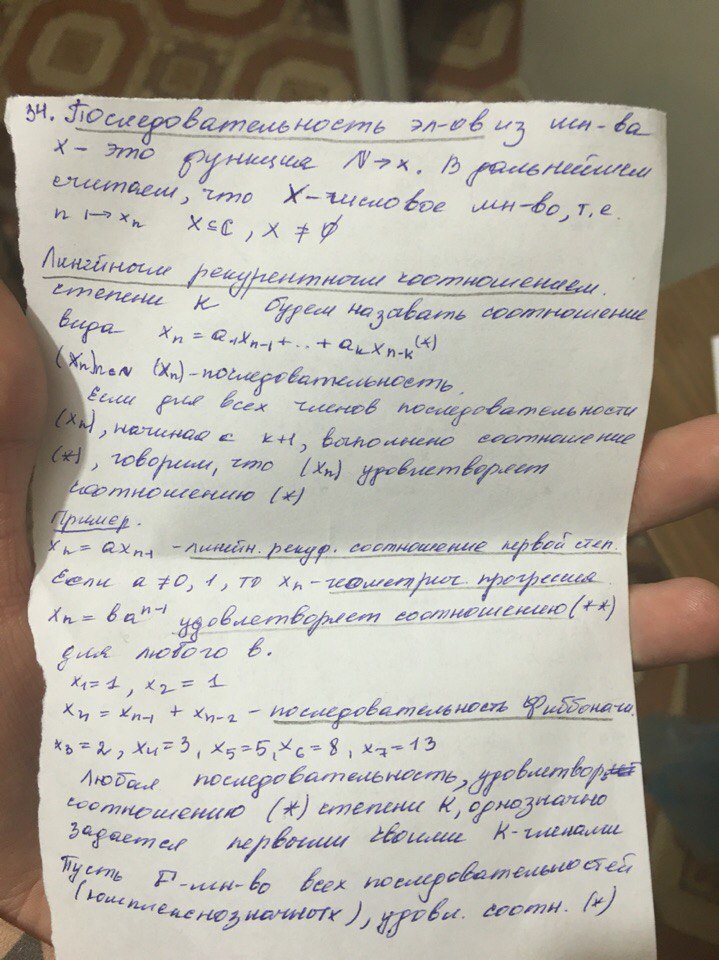 34. Последовательность эл-ов из мн-ва
X - это функция N→x. В дальнейшем
считаем, что X-числовое мн-во, т.е.
n ↦ xₙ X⊆ℂ, X ≠ ∅
Линейным рекурентным соотношением
степени K будем называть соотношение
вида xₙ = a₁xₙ₋₁+...+ aₖxₙ₋ₖ (*)
(xₙ)n∈N (xₙ)-последовательность.
Если для всех членов последовательности
(xₙ), начиная с k+1, выполнено соотношение
(*), говорим, что (xₙ) удовлетворяет
соотношению (*)
Пример.
xₙ = axₙ₋₁ - линейн. рекур. соотношение первой степ.
Если a ≠0, 1, то xₙ - геометрич. прогрессия
xₙ = baⁿ⁻¹ удовлетворяет соотношению (**)
для любого b.
x₁=1, x₂ = 1
xₙ = xₙ₋₁ + xₙ₋₂ - последовательность Фиббоначи.
x₃=2, x₄=3, x₅=5, x₆=8, x₇=13
Любая последовательность, удовлетвор.
соотношению (*) степени K, однозначно
задается первыми своими K-членами
Пусть F-мн-во всех последовательностей
(комплекснозначных), удовл. соотн. (*)